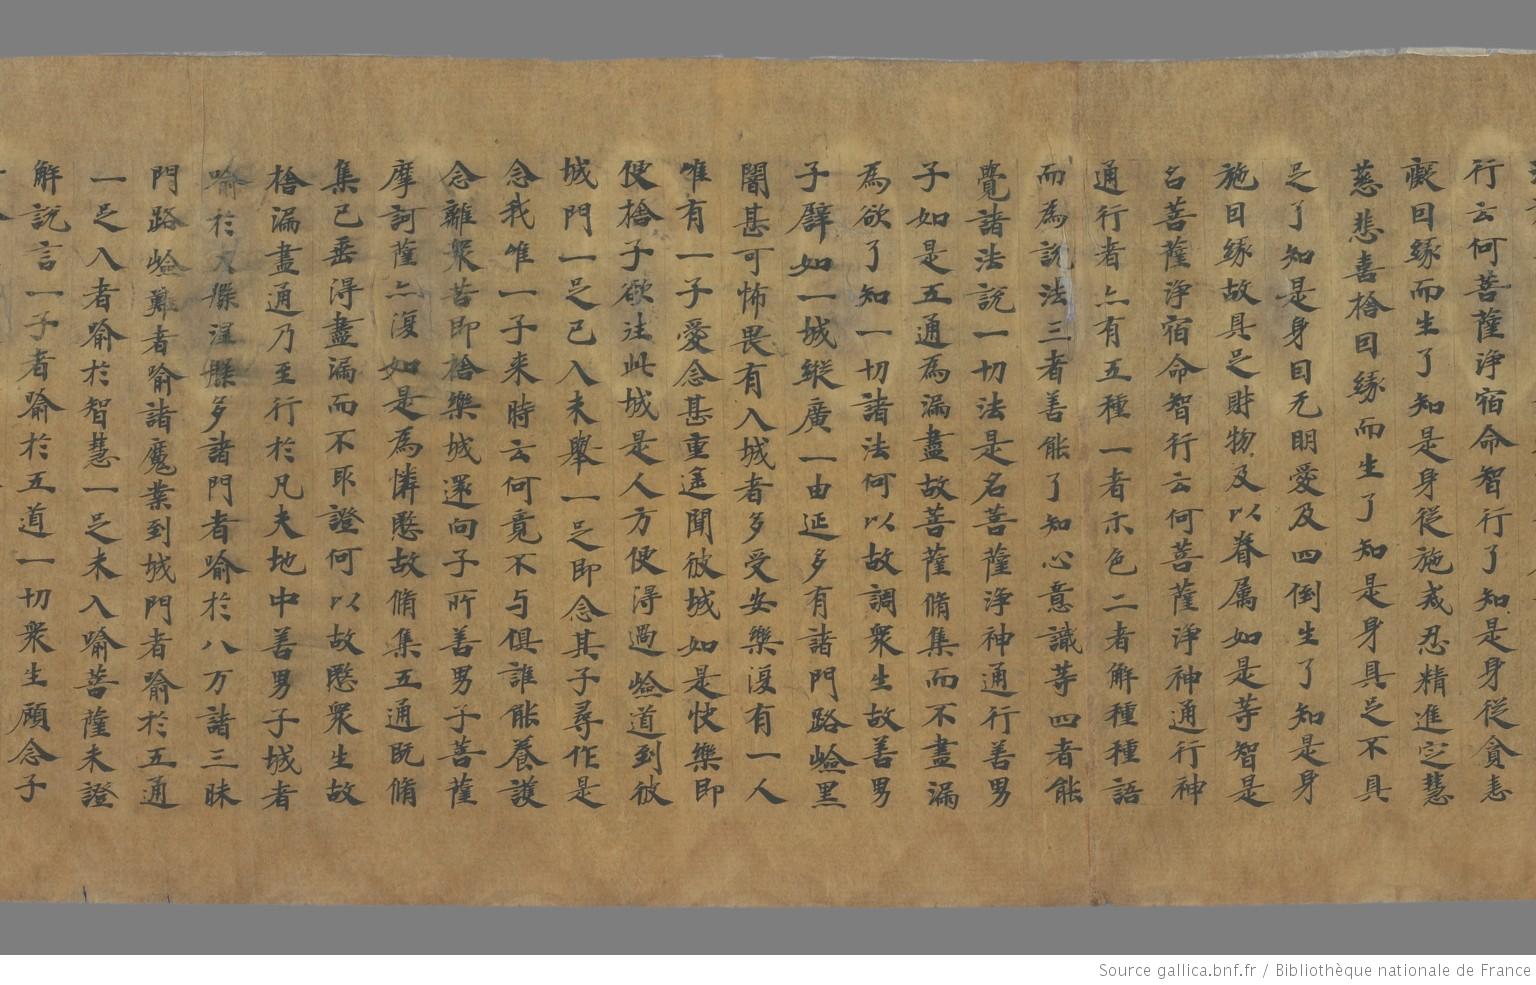 行云何菩薩淨宿命智行了知是身從貪恚
癡回縁而生了知是身從施戒忍精進定慧
慈悲喜捨回縁而生了知是身具足不具
足了知是身因无明愛及四倒生了知是身
施回縁故具足財物及以眷属如是等智是
名菩薩淨宿命智行云何菩薩淨神通行神
通行者亦有五種一者示色二者解種種語
而為說法三者善能了知心意識等四者能
覺諸法說一切法是名菩薩淨神通行善男
子如是五通為漏盡故菩薩脩集而不盡漏
為欲了知一切諸法何以故調衆生故善男
子譬如一城縱廣一由延多有諸門路嶮黑
闇甚可怖畏有入城者多受安樂復有一人
唯有一子愛念甚重遙聞彼城如是快樂即
便捨子欲往此城是人方便得過嶮道到彼
城門一足已入未舉一足即念其子尋作是
念我唯一子来時云何竟不与俱誰能養護
念離衆苦即捨樂城還向子所善男子菩薩
摩訶薩亦復如是為憐愍故脩集五通既脩
集已垂得盡漏而不取證何以故愍衆生故
捨漏盡通乃至行於凡夫地中善男子城者
喻於大般涅槃多諸門者喻於八万諸三昧
門路嶮難者喻諸魔業到城門者喻於五通
一足入者喻於智慧一足未入喻菩薩未證
解說言一子者喻於五道一切衆生顧念子